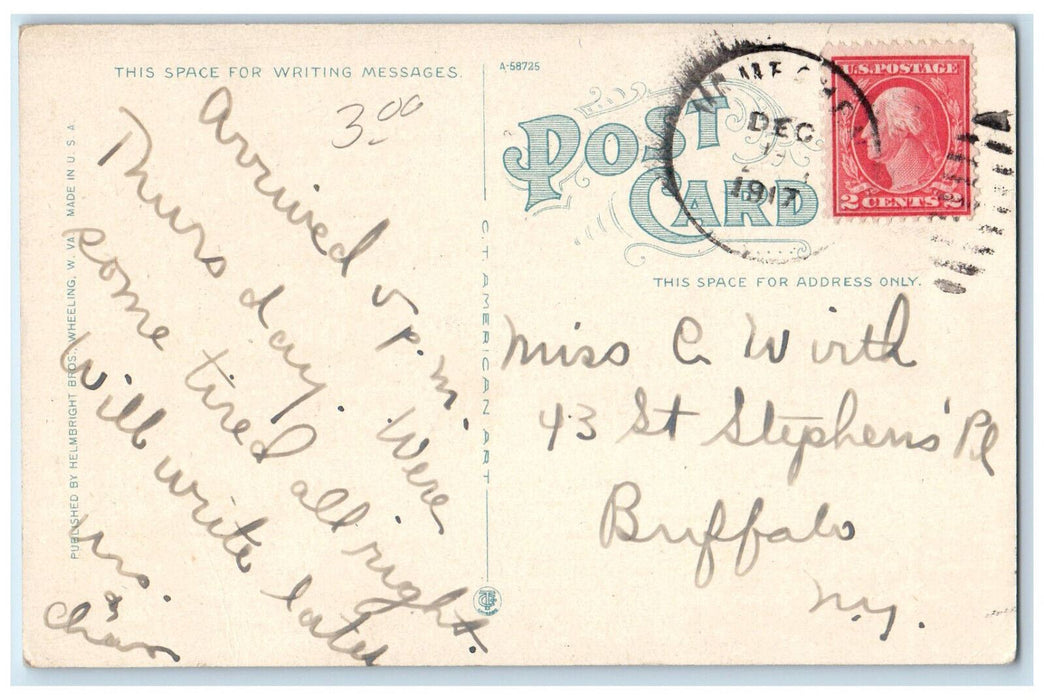 THIS SPACE FOR WRITING MESSAGES.
A-58725
3.00
PUBLISHED BY HELMBRIGHT BROS., WHEELING, W. VA. MADE IN U. S. A.
Arrived
Thurs day. P.m. Were
some tired all right.
Will write later
Mrs.
&
Chas
C.T. AMERICAN ART
POST
CARD
DEC
1917
U.S. POSTAGE
2 CENTS 2
THIS SPACE FOR ADDRESS ONLY.
Miss C. Wirth
43 St Stephens' Pl
Buffalo
N.Y.